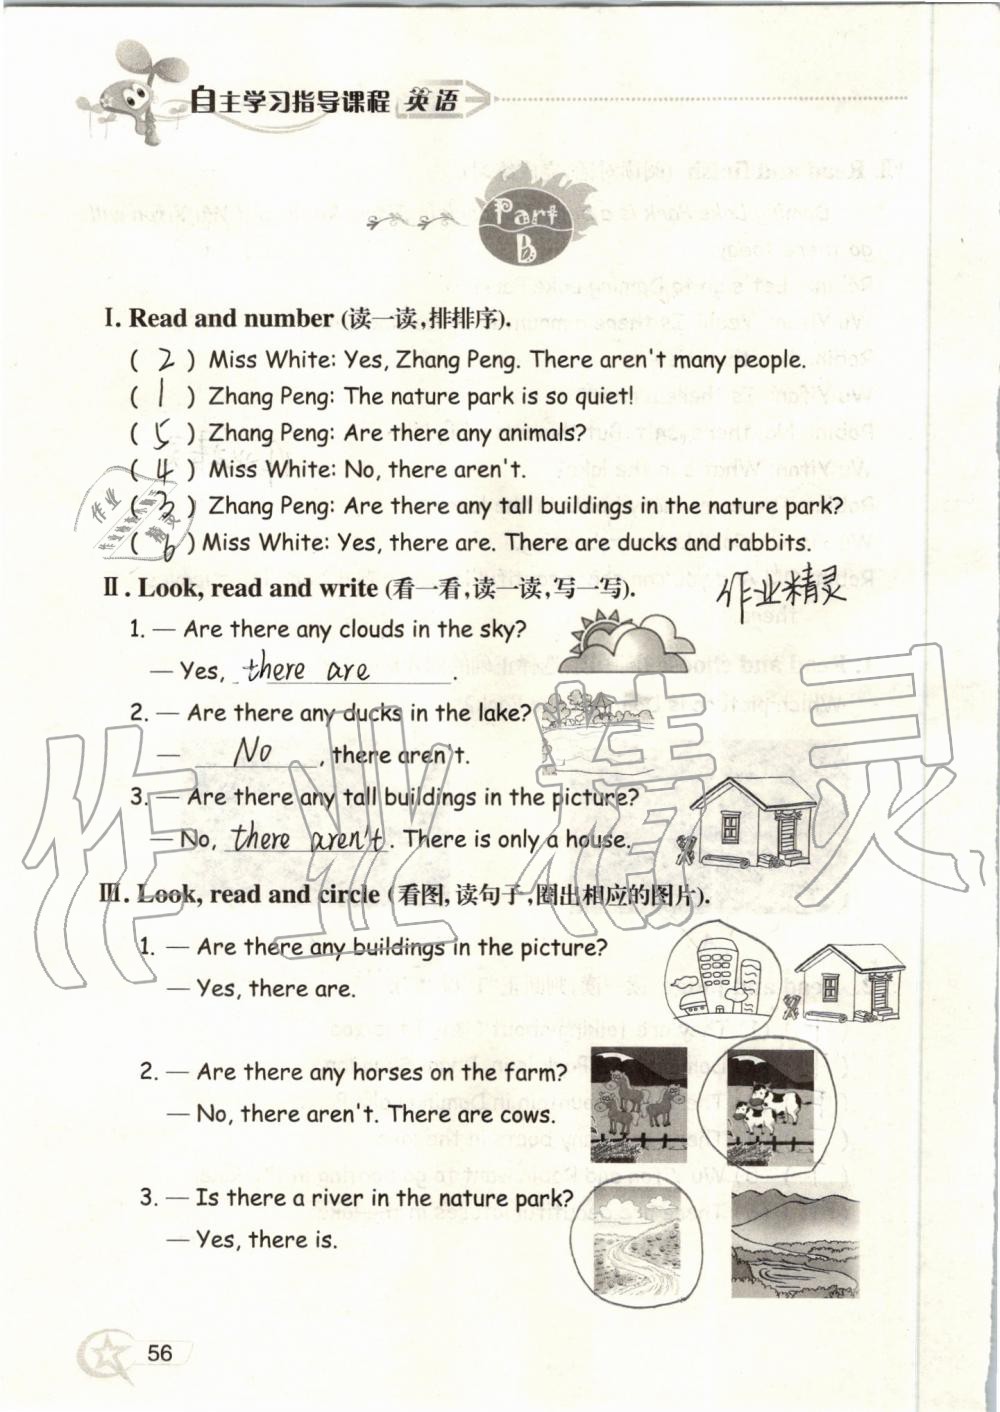 自主学习指导课程 英语
Part B
Ⅰ. Read and number (读一读,排排序).
( 2 ) Miss White: Yes, Zhang Peng. There aren't many people.
( 1 ) Zhang Peng: The nature park is so quiet!
( 5 ) Zhang Peng: Are there any animals?
( 4 ) Miss White: No, there aren't.
( 3 ) Zhang Peng: Are there any tall buildings in the nature park?
( 6 ) Miss White: Yes, there are. There are ducks and rabbits.
Ⅱ. Look, read and write (看一看,读一读,写一写).
作业精灵
1. — Are there any clouds in the sky?
— Yes, there are.
2. — Are there any ducks in the lake?
— No, there aren't.
3. — Are there any tall buildings in the picture?
— No, there aren't. There is only a house.
Ⅲ. Look, read and circle (看图,读句子,圈出相应的图片).
1. — Are there any buildings in the picture?
— Yes, there are.
2. — Are there any horses on the farm?
— No, there aren't. There are cows.
3. — Is there a river in the nature park?
— Yes, there is.
56
作业精灵